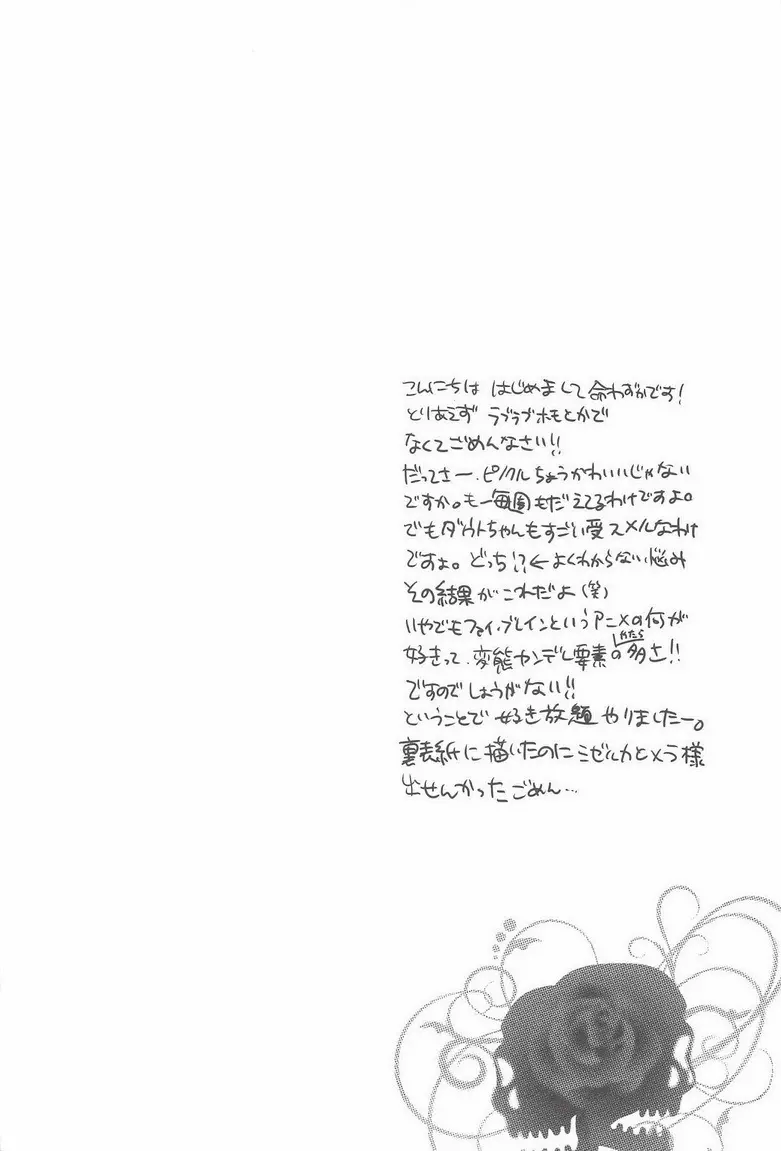 こんにちは はじめまして 命わずかです!
とりあえず ラブラブホモとかで
なくてごめんなさい!!
だってさー、ピノクルちょうかわいいじゃない
ですか。もー毎週もだえてるわけですよ。
でもダウトちゃんもすごい受スメルなわけ
ですよ。どっち!?←よくわからない悩み
その結果がこれだよ(笑)
いやでもファイ・ブレインというアニメの何が
好きって、変態ヤンデレ要素のやたら多さ!!
ですのでしょうがない!!
ということで 好き放題 やりましたー。
裏表紙に描いたのにミゼルカとメラ様
出せんかったごめん…